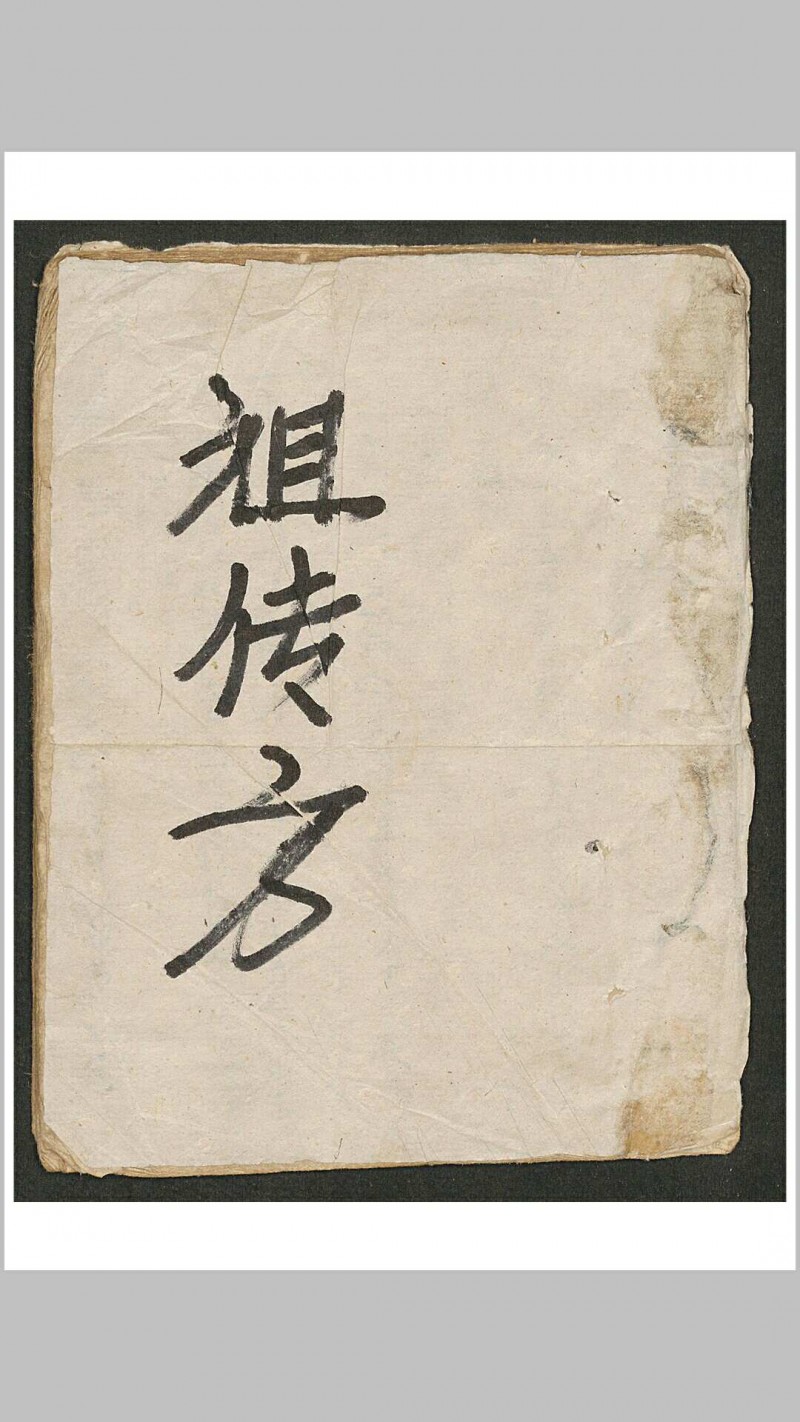 祖传方